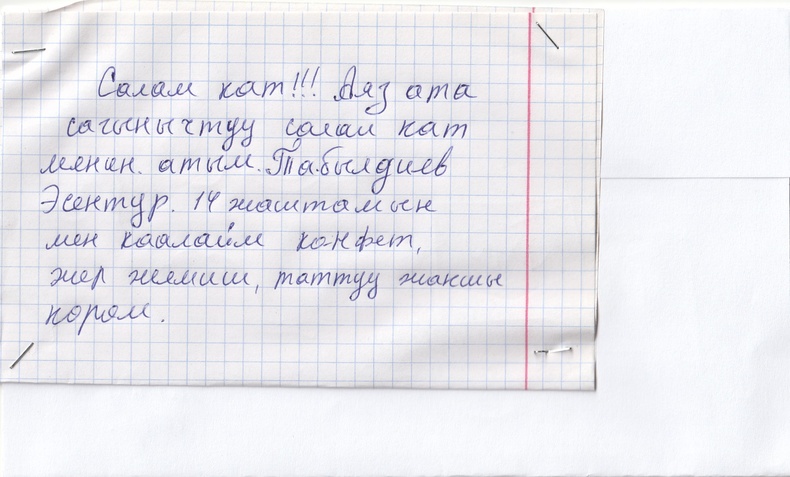 Салам кат!!! Аяз ата
сагынычтуу салам кат
менен. атым. Табылдиев
Эсентур. 14 жаштамын
мен каалайм конфет,
жер жемиш, таттуу жакшы
кором.